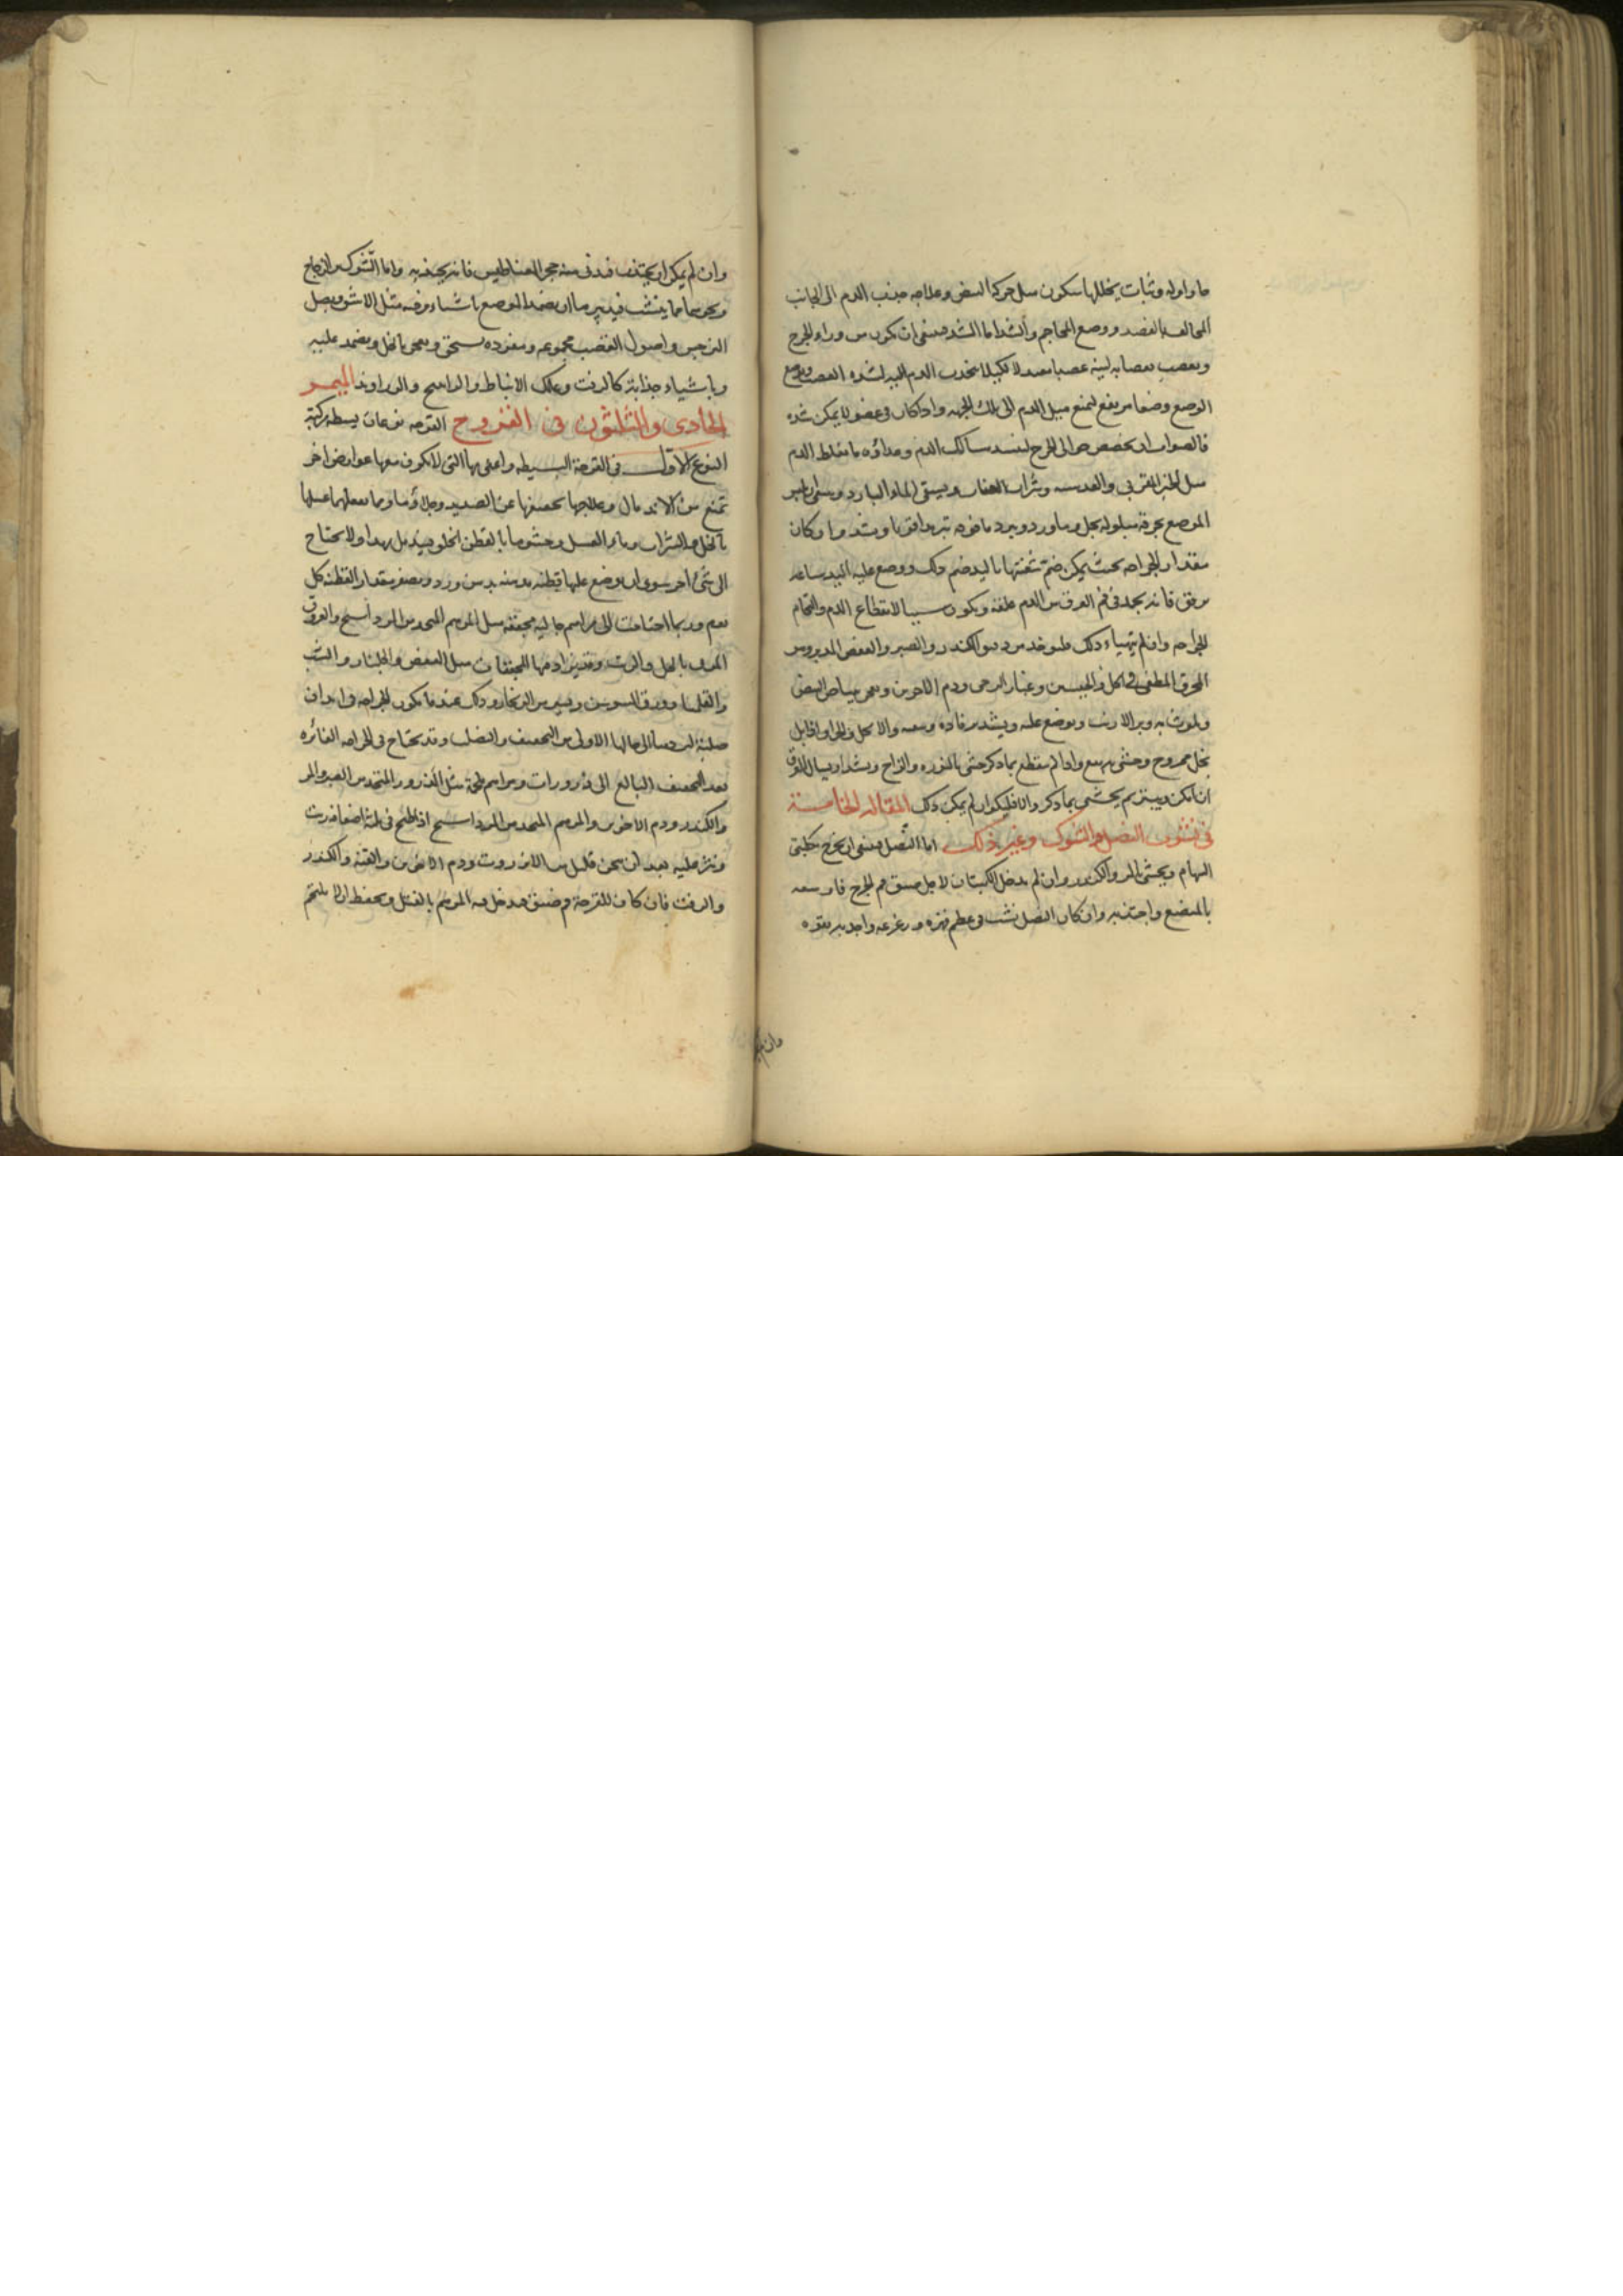 وثبات يخللها سكون مثل حركة النبض وعلاجه جذب الدم الى الجانب
المخالف بالفصد ووضع المحاجم والشد اما الشد فينبغى ان يكون من وراء الجرح
ويعصب بعصابه لينة عصبا معتدلا لكيلا ينجذب الدم اليه لشده العصب ويوضع
الوضع وضعا مرتفع ليمنع ميل الدم الى تلك الجهه واذا كان فى عضو لا يمكن شده
فالصواب ان الى الجرح لينسد مسالك الدم وغذاؤه ما يغلظ الدم
مثل والعدسيه وشراب العناب ويسقى الماء البارد
الموضع بخرقة مبلوله بخل وماورد ويبرد ما فوقه تبريدا قويا ويشد وان كان
مقدار الجراحه بحيث يمكن ضم شفتيها باليد ضم ذلك ووضع عليه اليد ساعه
برفق فانه يجمد فى فم العرق من الدم علقة ويكون سببا لانقطاع الدم والتحام
الجراحه وان لم يتهياء ذلك فليوخذ من دقيق الكندر والصبر والعفص
المحرق المطفى فى الخل والجبسين وغبار الرحى ودم الاخوين ويعجن ببياض البيض
ويلوث به وبر الارنب ويوضع عليه ويشد برفاده
بخل ممزوج وحشى وان لم ينقطع بما ذكر حشى بالنوره والزاج وشد
ان امكن ثم يحشى بما ذكر والا فليكوا ان لم يمكن ذلك المقاله الخامسة
فى نشوب النصل والشوك وغير ذلك اما النصل فينبغى ان يخرج بكلبتى
السهام ويحشى المر والكندر وان لم يدخل الكلبتان لاجل ضيق فم الجرح فاوسعه
بالمبضع واجتذبه وان كان النصل نشب فى عظم فهزه وزعزعه واجذبه بقوه
وان لم
وان لم يمكن ان يجتذب فدنى منه حجر المغناطيس فانه يجذبه واما الشوك والزجاج
ونحوهما مما ينشب فيدبر بان يضمد الموضع باشياء مرخيه مثل الاشق وبصل
النرجس واصول القصب مجموعه ومفرده يسحق ويعجن بالخل ويضمد عليه
وباشياء جذابة كالزفت وعلك الانباط والراتينج والزراوند الميمر
الحادى والثلثون فى القروح القرحه نوعان بسيطه ومركبة
النوع الاول فى القرحة البسيطه واعنى بها التى لا يكون معها عوارض اخر
تمنع من الاندمال وعلاجها تجفيفها عن الصديد وجلاؤها ومما يفعلهما غسلها
بالخل والشراب وماء العسل وحشوها بالقطن الخلق فيندمل بهذا ولا يحتاج
الى شئ اخر سوى ان يوضع عليها قطنه بدهن ورد ويصغر مقدار القطنه كل
يوم وربما احتاجت الى مراسم جاليه مجففه مثل المرهم المتخذ من المرداسنج والعروق
المربى بالخل والزيت وقد يزاد فيها المجففات مثل العفص والجلنار والشب
والقليميا وورق السوسن ويسير من الزنجار وذلك عند ما يكون الجراحه فى ابدان
صلبة ليردها الى حالها الاولى من التجفيف والفضل وقد يحتاج فى الجراحه الغائره
بعد التجفيف البالغ الى ذرورات ومراسم ملحمة مثل الذرور المتخذ من الصبر والمر
والكندر ودم الاخوين والمرهم المتخذ من المرداسنج اذا طبخ فى ثلثة اضعافه زيت
ونثر عليه بعد ان ثخن قليل من الانزروت ودم الاخوين والقنه والكندر
والزفت فان كان للقرحة فم ضيق فيدخل فيه المرهم بالفتل ويحفظ ان لا يلتحم